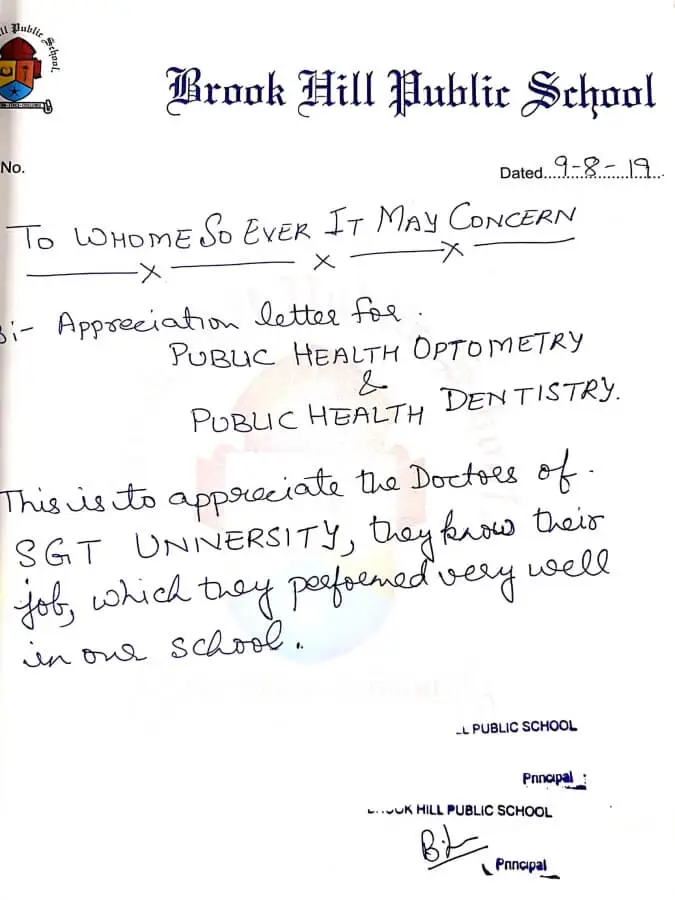 ll Public School,
Brook Hill Public School
No.
Dated....9-8-19....
TO WHOME SO EVER IT MAY CONCERN
Appreciation letter for.
PUBLIC HEALTH OPTOMETRY
&
PUBLIC HEALTH DENTISTRY.
This is to appreciate the Doctors of.
SGT UNIVERSITY, they know their
job, which they performed very well
in our school.
L PUBLIC SCHOOL
Principal
HILL PUBLIC SCHOOL
Principal